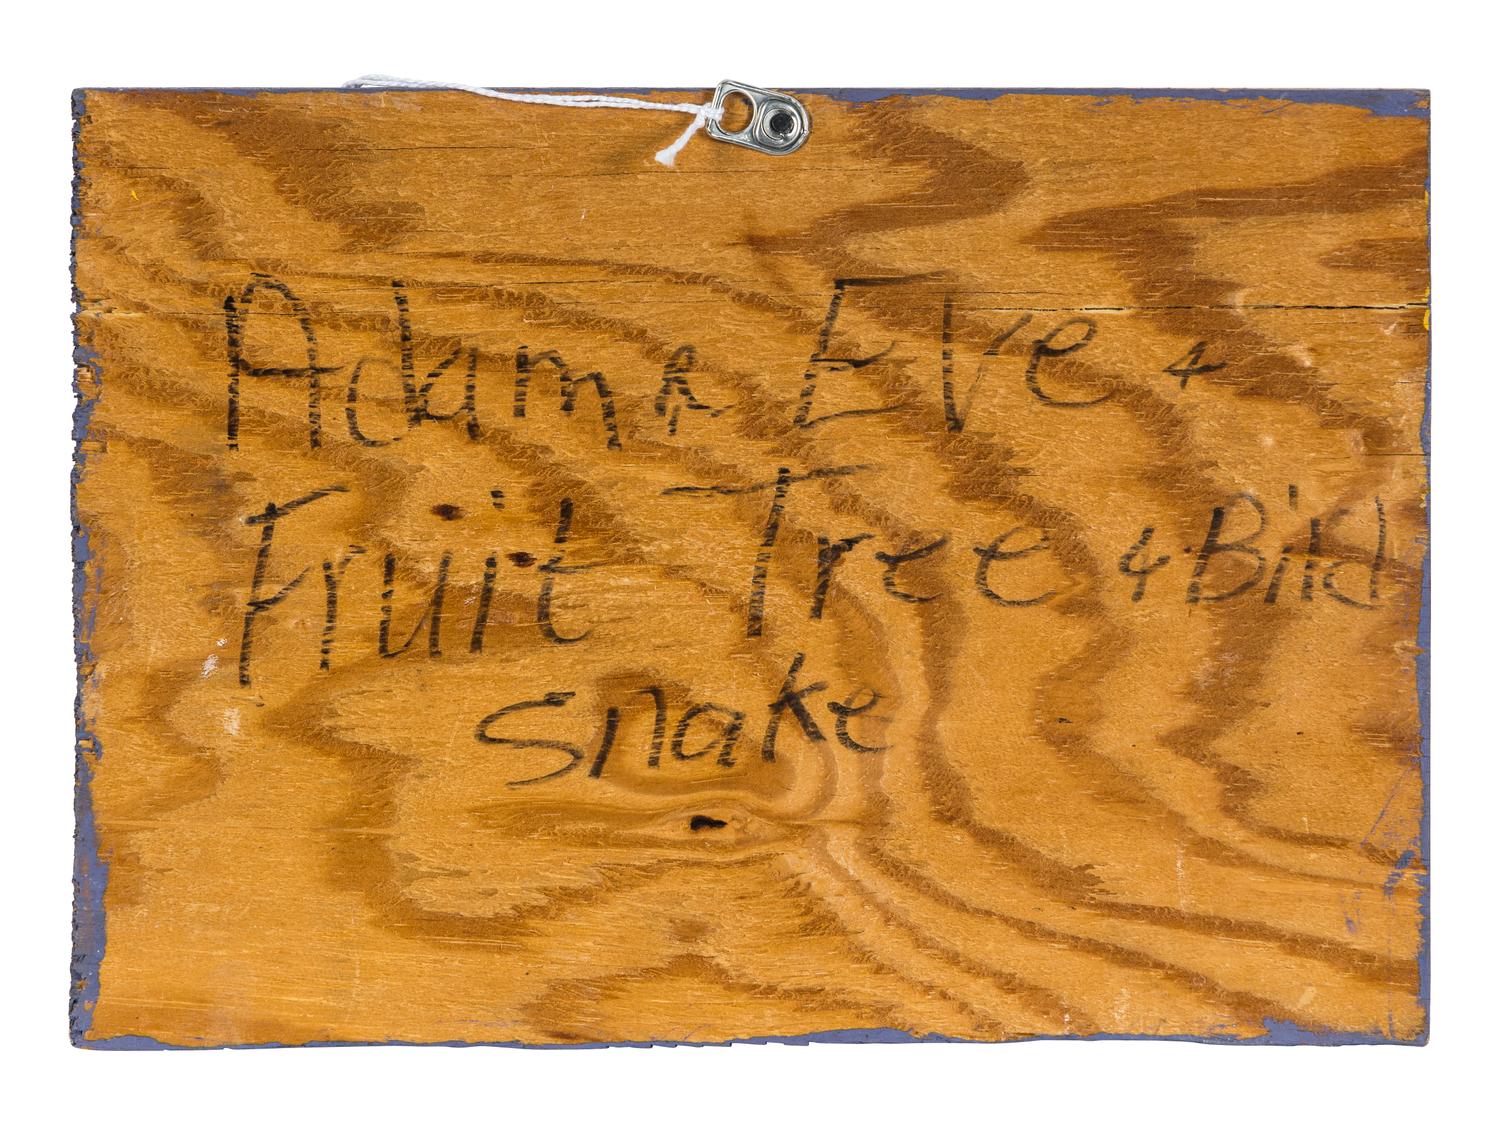 Adam & Eve &
Fruit Tree & Bird
snake